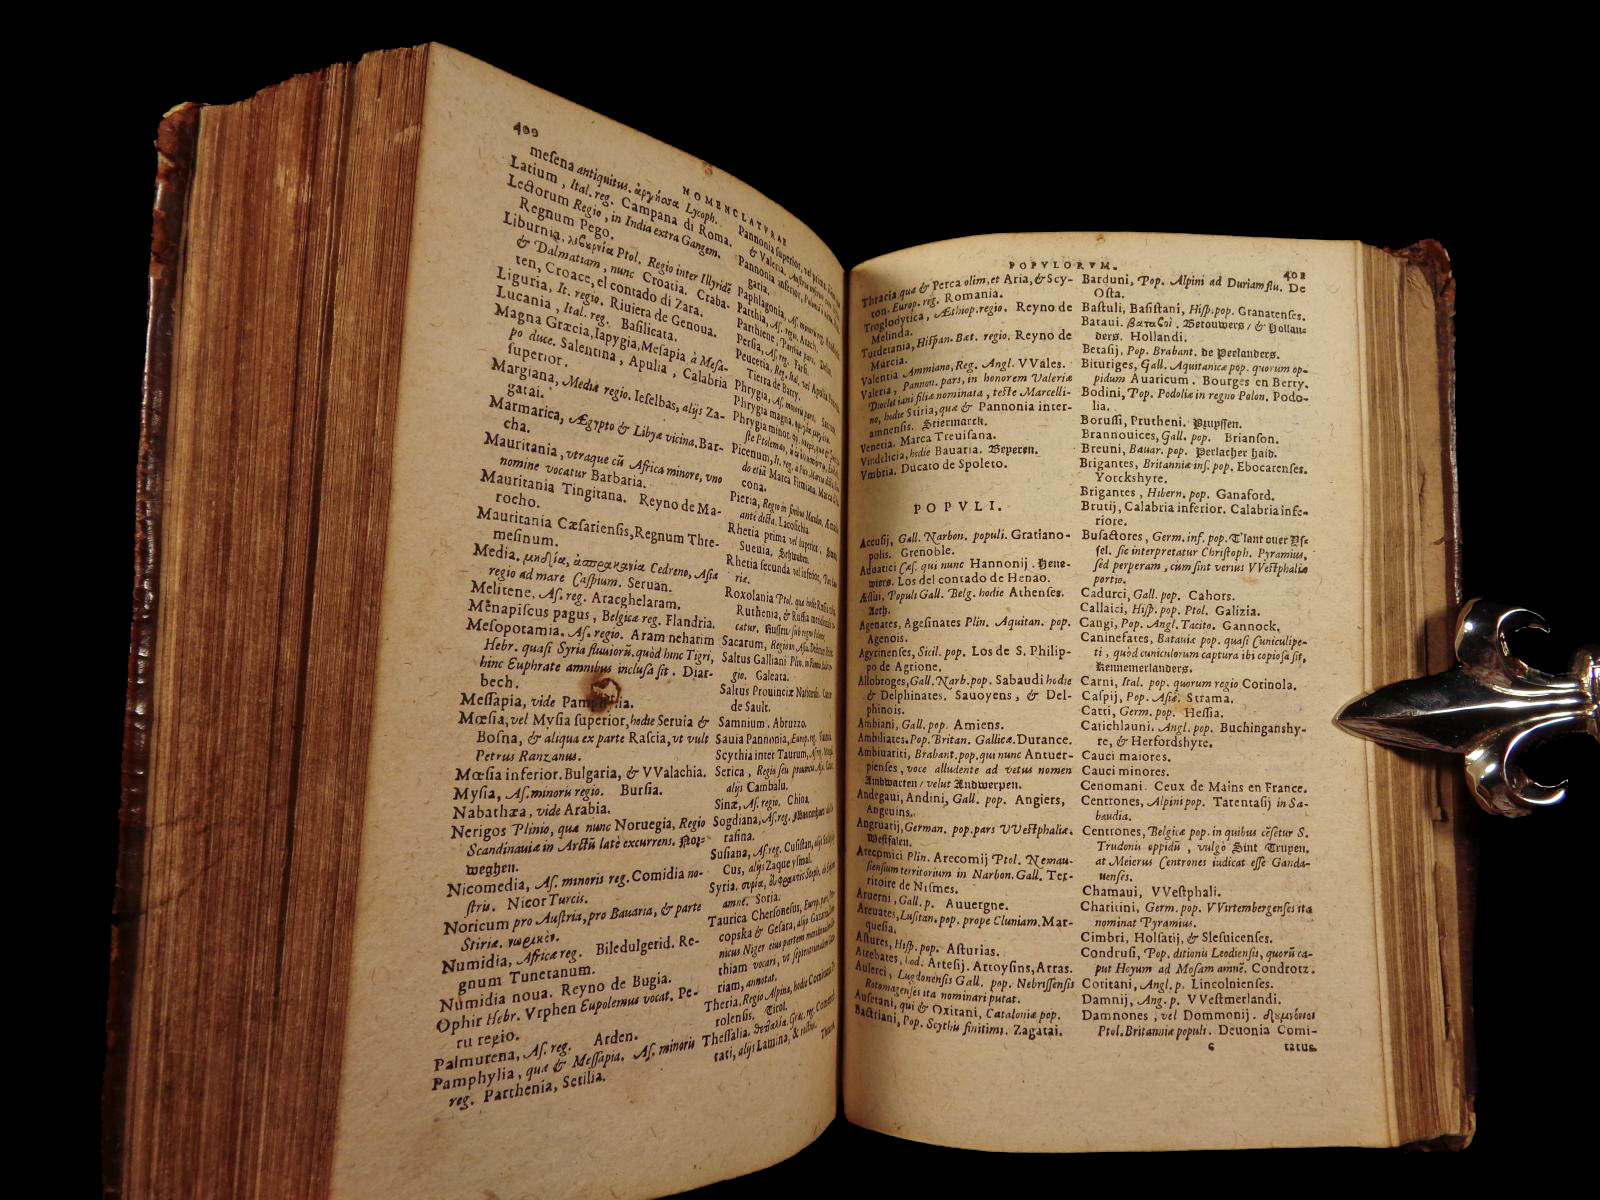 409
NOMENCLATVRAE
meſena antiquitus. ἀργήοσα Lycoph.
Latium, Ital. reg. Campana di Roma.
Lectorum Regio, in India extra Gangem.
Regnum Pego.
Liburnia, Ptol. Regio inter Illyridē
& Dalmatiam, nunc Croatia. Craba-
ten, Croace, el contado di Zara.
Liguria, It. regio. Riuiera de Genoua.
Lucania, Ital. reg. Basilicata.
Magna Græcia, Iapygia, Meſapia à Meſa-
po duce. Salentina, Apulia, Calabria
ſuperior.
Margiana, Mediæ regio. Ieſelbas, alijs Za-
gatai.
Marmarica, Ægypto & Libyæ vicina. Bar-
cha.
Mauritania, vtraque cū Africa minore, vno
nomine vocatur Barbaria.
Mauritania Tingitana. Reyno de Ma-
rocho.
Mauritania Cæſarienſis, Regnum Thre-
meſinum.
Media. μηδία, Cedreno, Aſiæ
regio ad mare Caſpium. Seruan.
Melitene, Aſ. reg. Aracghelaram.
Menapiſcus pagus, Belgicæ reg. Flandria.
Mesopotamia. Aſ. regio. Aram neharim
Hebr. quaſi Syria fluuiorū. quòd hinc Tigri,
hinc Euphrate amnibus incluſa ſit. Diar-
bech.
Meſſapia, vide Pamphylia.
Mœſia, vel Myſia ſuperior, hodie Seruia &
Boſna, & aliqua ex parte Raſcia, vt vult
Petrus Ranzanus.
Mœſia inferior. Bulgaria, & VValachia.
Myſia, Aſ. minoris regio. Burſia.
Nabathæa, vide Arabia.
Nerigos Plinio, quæ nunc Noruegia, Regio
Scandinauiæ in Arctū latè excurrens. Nor-
weghen.
Nicomedia, Aſ. minoris reg. Comidia no-
ſtris. Nicor Turcis.
Noricum pro Auſtria, pro Bauaria, & parte
Stiriæ.
Numidia, Africæ reg. Biledulgerid. Re-
gnum Tunetanum.
Numidia noua. Reyno de Bugia.
Ophir Hebr. Vrphen Eupolemus vocat. Pe-
ru regio.
Palmurena, Aſ. reg. Arden.
Pamphylia, quæ & Meſſapia. Aſ. minoris
reg. Parthenia, Setilia.
Pannonia ſuperior,
Pannonia inferior,
gatia.
Paphlagonia, Aſ. minoris reg.
Parthia, Aſ. regio, Arach.
Parthiene,
Perſia, Aſ. reg. Farſi.
Peucetia, Reg. Ital. vel Apulia
Tierra de Barry.
Phrygia, Aſ. minoris
Phrygia magna.
Phrygia minor,
Picenum, It. reg.
do etiā Marca Firmiana, Marca d'
cona.
Pieria, Regio in finibus
anti dicta. Lacoſichia.
Rhetia prima vel ſuperior,
Sueuia. Schwaben.
Rhetia ſecunda vel inferior,
riæ.
Roxolania Ptol. quæ hodie Ruſſia
Ruthenia, & Ruſſia
catur.
Sacarum, Regio in Aſia
Saltus Galliani Plin.
gio. Galeata.
Saltus Prouinciæ
de Sault.
Samnium. Abruzzo.
Sauia Pannonia, Europ. reg.
Scythia inter Taurum, Aſ. reg.
Serica, Regio ſeu prouincia
alijs Cambalu.
Sinæ, Aſ. regio. China.
Sogdiana, Aſ. reg.
raſina.
Suſiana, Aſ. reg. Cuſiſtan,
Cus, alijs Zaque yſmal.
Syria.
amne. Soria.
Taurica Cherſoneſus, Europ.
copska & Geſara, alijs Gazara
nicus Niger eius partem
thiam vocari, vt ſeptentrionalem
riam, annotat.
Theria, Regio Alpina, hodie
rolenſis. Tirol.
Theſſalia. Græc. reg.
tati, alijs Lamina, &
Thracia
POPVLORVM.
401
Thracia quæ & Perca olim, et Aria, & Scy-
ton. Europ. reg. Romania.
Troglodytica, Æthiop. regio. Reyno de
Melinda.
Turdetania, Hiſpan. Bæt. regio. Reyno de
Murcia.
Valentia Ammiano, Reg. Angl. VVales.
Valeria, Pannon. pars, in honorem Valeriæ
Diocletiani filiæ nominata, teſte Marcelli-
no, hodie Stiria, quæ & Pannonia inter-
amnenſis. Stiermarck.
Venetia. Marca Treuiſana.
Vindelicia, hodie Bauaria. Beyeren.
Vmbria. Ducato de Spoleto.
POPVLI.
Accuſij, Gall. Narbon. populi. Gratiano-
polis. Grenoble.
Aduatici Cæſ. qui nunc Hannonij. Hene-
wiers. Los del contado de Henao.
Æſſui, Populi Gall. Belg. hodie Athenſes.
Aeth.
Agenates, Ageſinates Plin. Aquitan. pop.
Agenois.
Agyrinenſes, Sicil. pop. Los de S. Philip-
po de Agrione.
Allobroges, Gall. Narb. pop. Sabaudi hodie
& Delphinates. Sauoyens, & Del-
phinois.
Ambiani, Gall. pop. Amiens.
Ambiliates. Pop. Britan. Gallicæ. Durance.
Ambiuariti, Brabant. pop. qui nunc Antuer-
pienſes, voce alludente ad vetus nomen
Ambwarten/ velut Andwerpen.
Andegaui, Andini, Gall. pop. Angiers,
Angeuins.
Angruarij, German. pop. pars VVeſtphaliæ.
Weſtfalen.
Arecomici Plin. Arecomij Ptol. Nemau-
ſienſium territorium in Narbon. Gall. Ter-
ritoire de Niſmes.
Aruerni, Gall. p. Auuergne.
Areuates, Luſitan. pop. prope Cluniam. Mar-
queſia.
Aſtures, Hiſp. pop. Aſturias.
Atrebates, hod. Arteſij. Artoyſins, Arras.
Aulerci, Lugdonenſis Gall. pop. Nebriſſenſis
Rotomagenſes ita nominari putat.
Auſetani, qui & Oxitani, Cataloniæ pop.
Bactriani, Pop. Scythis finitimi. Zagatai.
Barduni, Pop. Alpini ad Duriam flu. De
Oſta.
Baſtuli, Baſiſtani, Hiſp. pop. Granatenſes.
Bataui. Betouwers/ & Hollan-
ders. Hollandi.
Betaſij, Pop. Brabant. de Peelanders.
Bituriges, Gall. Aquitanicæ pop. quorum op-
pidum Auaricum. Bourges en Berry.
Bodini, Pop. Podoliæ in regno Polon. Podo-
lia.
Boruſſi, Prutheni. Pruyſſen.
Brannouices, Gall. pop. Brianſon.
Breuni, Bauar. pop. Perlacher haid.
Brigantes, Britanniæ inſ. pop. Ebocarenſes.
Yorckshyre.
Brigantes, Hibern. pop. Ganaford.
Brutij, Calabria inferior. Calabria infe-
riore.
Buſactores, Germ. inf. pop. T'lant ouer Yſ-
ſel. ſic interpretatur Chriſtoph. Pyramius,
ſed perperam, cum ſint verius VVeſtphaliæ
portio.
Cadurci, Gall. pop. Cahors.
Callaici, Hiſp. pop. Ptol. Galizia.
Cangi, Pop. Angl. Tacito. Gannock.
Caninefates, Batauiæ pop. quaſi Cuniculipe-
ti, quòd cuniculorum captura ibi copioſa ſit,
Kennemerlanders.
Carni, Ital. pop. quorum regio Corinola.
Caſpij, Pop. Aſiæ. Strama.
Catti, Germ. pop. Heſſia.
Catichlauni. Angl. pop. Buchinganshy-
re, & Herfordshyre.
Cauci maiores.
Cauci minores.
Cenomani. Ceux de Mains en France.
Centrones, Alpini pop. Tarentaſij in Sa-
baudia.
Centrones, Belgicæ pop. in quibus cēſetur S.
Trudonis oppidū, vulgò Sint Truyen.
at Meierus Centrones iudicat eſſe Ganda-
uenſes.
Chamaui, VVeſtphali.
Charitini, Germ. pop. VVirtembergenſes ita
nominat Pyramius.
Cimbri, Holſatij, & Sleſuicenſes.
Condruſi, Pop. ditionis Leodienſis, quorū ca-
put Hoyum ad Moſam amnē. Condrotz.
Coritani, Angl. p. Lincolnienſes.
Damnij, Ang. p. VVeſtmerlandi.
Damnones, vel Dommonij.
Ptol. Britanniæ populi. Deuonia Comi-
c
tatus